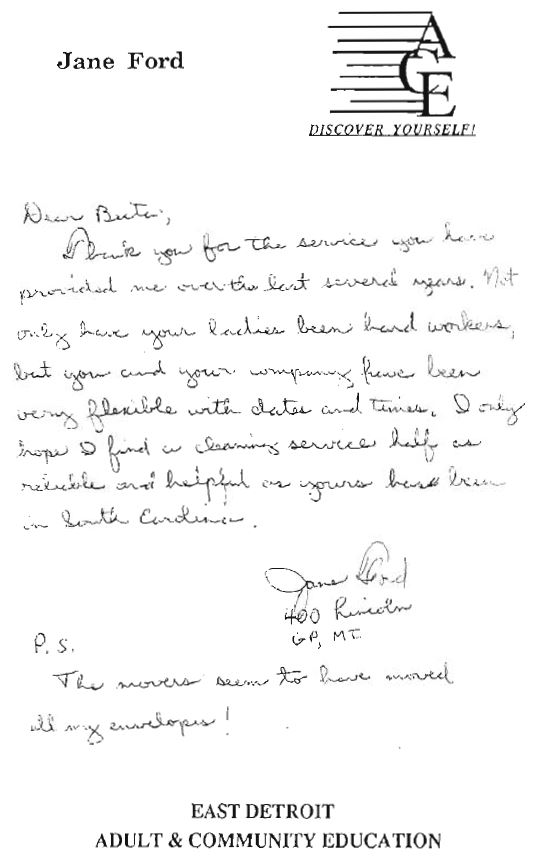 Jane Ford
ACE
DISCOVER YOURSELF!
Dear
Thank you for the service you have
provided me over the last several years. Not
only have your ladies been hard workers,
but you and your company have been
very flexible with dates and times. I only
hope I find a cleaning service half as
reliable and helpful as yours has been
in South Carolina.
Jane Ford
400 Lincoln
GP, MI
P.S.
The movers seem to have moved
all my envelopes!
EAST DETROIT
ADULT & COMMUNITY EDUCATION